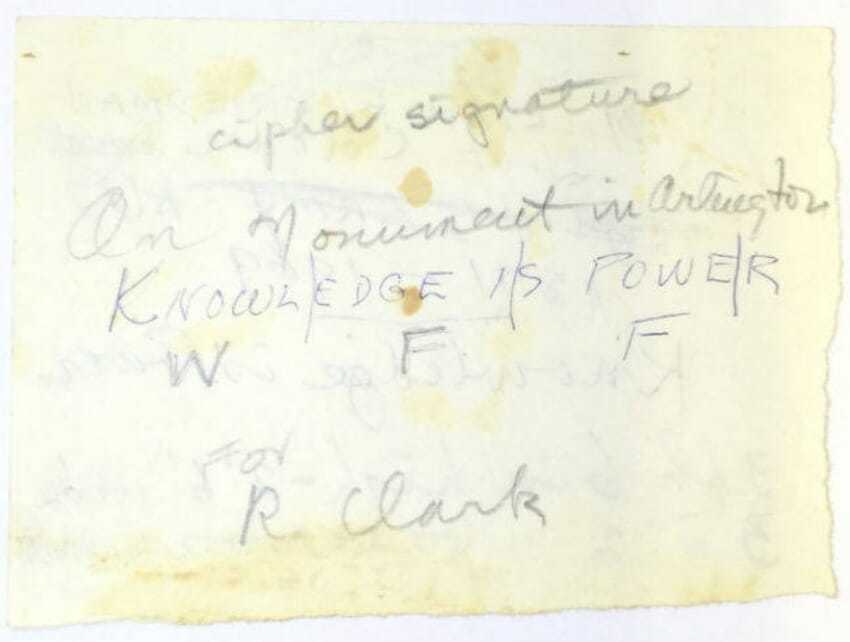 cipher signature
On Monument in Arlington
KNOWL/EDGE I/S POWE/R
W F F
For
R Clark